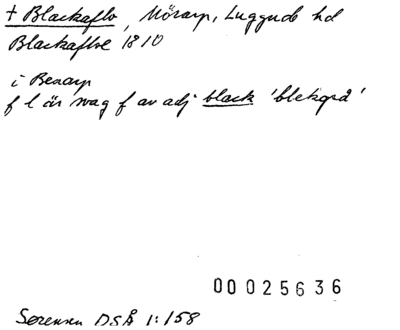 † Blackaflo, Mörarp, Luggude hd
Blackafloe 1810
i Benarp
f l är svag f av adj black 'blekgrå'
00025636
Sørensen DSÅ 1:158